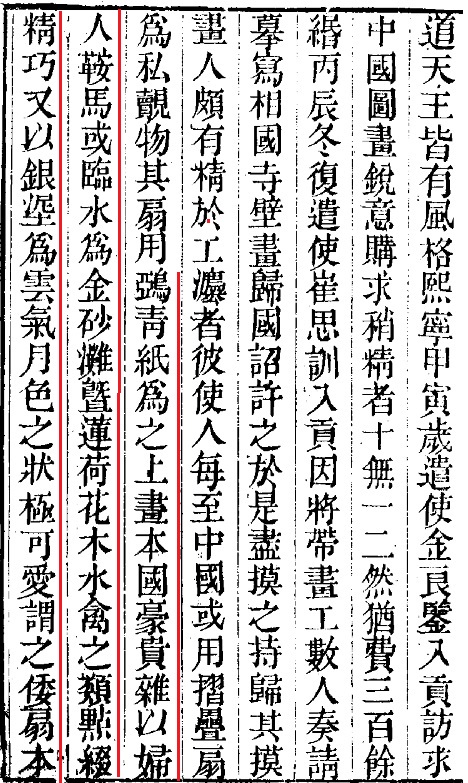 道天王皆有風格熙寧甲寅歲遣使金良鑒入貢訪求
中國圖畫銳意購求稍精者十無一二然猶費三百餘
緡丙辰冬復遣使崔思訓入貢因將帶畫工數人奏請
摹寫相國寺壁畫歸國詔許之於是盡摸之持歸其摸
畫人頗有精於工灋者彼使人每至中國或用摺疊扇
爲私覿物其扇用鵶青紙爲之上畫本國豪貴雜以婦
人鞍馬或臨水爲金砂灘暨蓮荷花木水禽之類點綴
精巧又以銀埿爲雲氣月色之狀極可愛謂之倭扇本